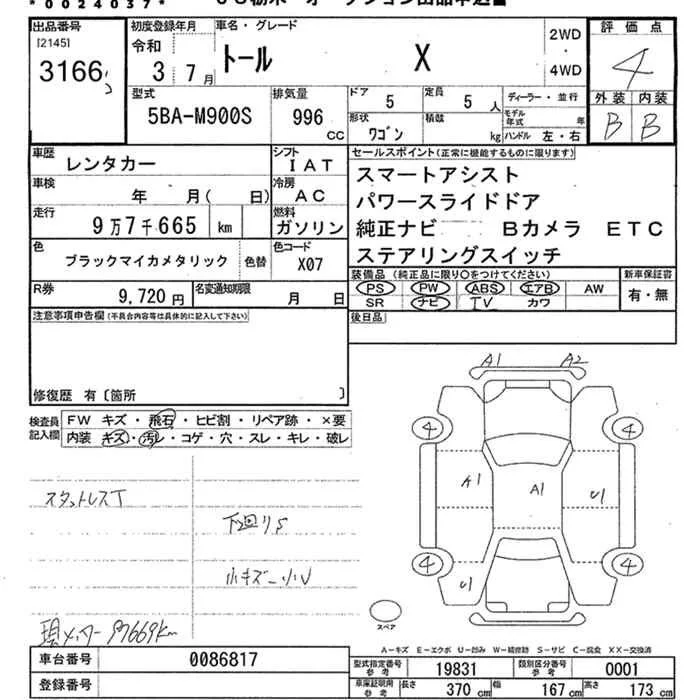 *0024037*
出品番号
[2145]
3166
初度登録年月
令和
3 7月
車名・グレード
トール X
2WD
・
4WD
評価点
4
外装 内装
B B
型式
5BA-M900S
排気量
996 CC
ドア
5
定員
5 人
形状
ワゴン
積載
kg
ディーラー・並行
モデル年式 年
ハンドル 左・右
車歴
レンタカー
シフト
I AT
車検
年 月( 日)
冷房
AC
走行
9万7千665 km
燃料
ガソリン
色
ブラックマイカメタリック
色替
色コード
X07
R券
9,720 円
名変通知期限
月 日
セールスポイント(正常に機能するものに限ります)
スマートアシスト
パワースライドドア
純正ナビ Bカメラ ETC
ステアリングスイッチ
装備品 (純正品に限り○をつけてください)
PS PW ABS エアB AW
SR ナビ TV カワ
新車保証書
有・無
後日品
注意事項申告欄(不具合内容等は具体的に記入して下さい)
修復歴 有〔箇所 〕
検査員
記入欄
FW キズ・飛石・ヒビ割・リペア跡・×要
内装 キズ・汚レ・コゲ・穴・スレ・キレ・破レ
スタットレスT
下回りS
小キズ-小U
現メーター 97669km
A1 A2
4 4
A1 A1 U1
4 4
U1
スペア
A-キズ E-エクボ U-凹み W-補修跡 S-サビ C-腐食 XX-交換済
車台番号
0086817
登録番号
型式指定番号
参考
19831
類別区分番号
参考
0001
車庫証明用
参考
長さ
370 cm
幅
167 cm
高さ
173 cm